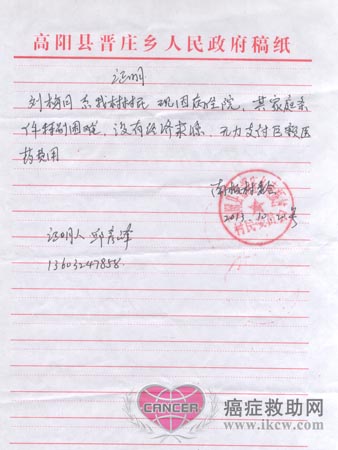 高阳县晋庄乡人民政府稿纸
证明
刘 同 系我村村民 现因病住院，其家庭条
件特别困难，没有经济来源，无力支付巨额医
药费用
村委会
2013.10
村民委员会
证明人 邱彦峰
13603247858
CANCER
癌症救助网
www.ikcw.com